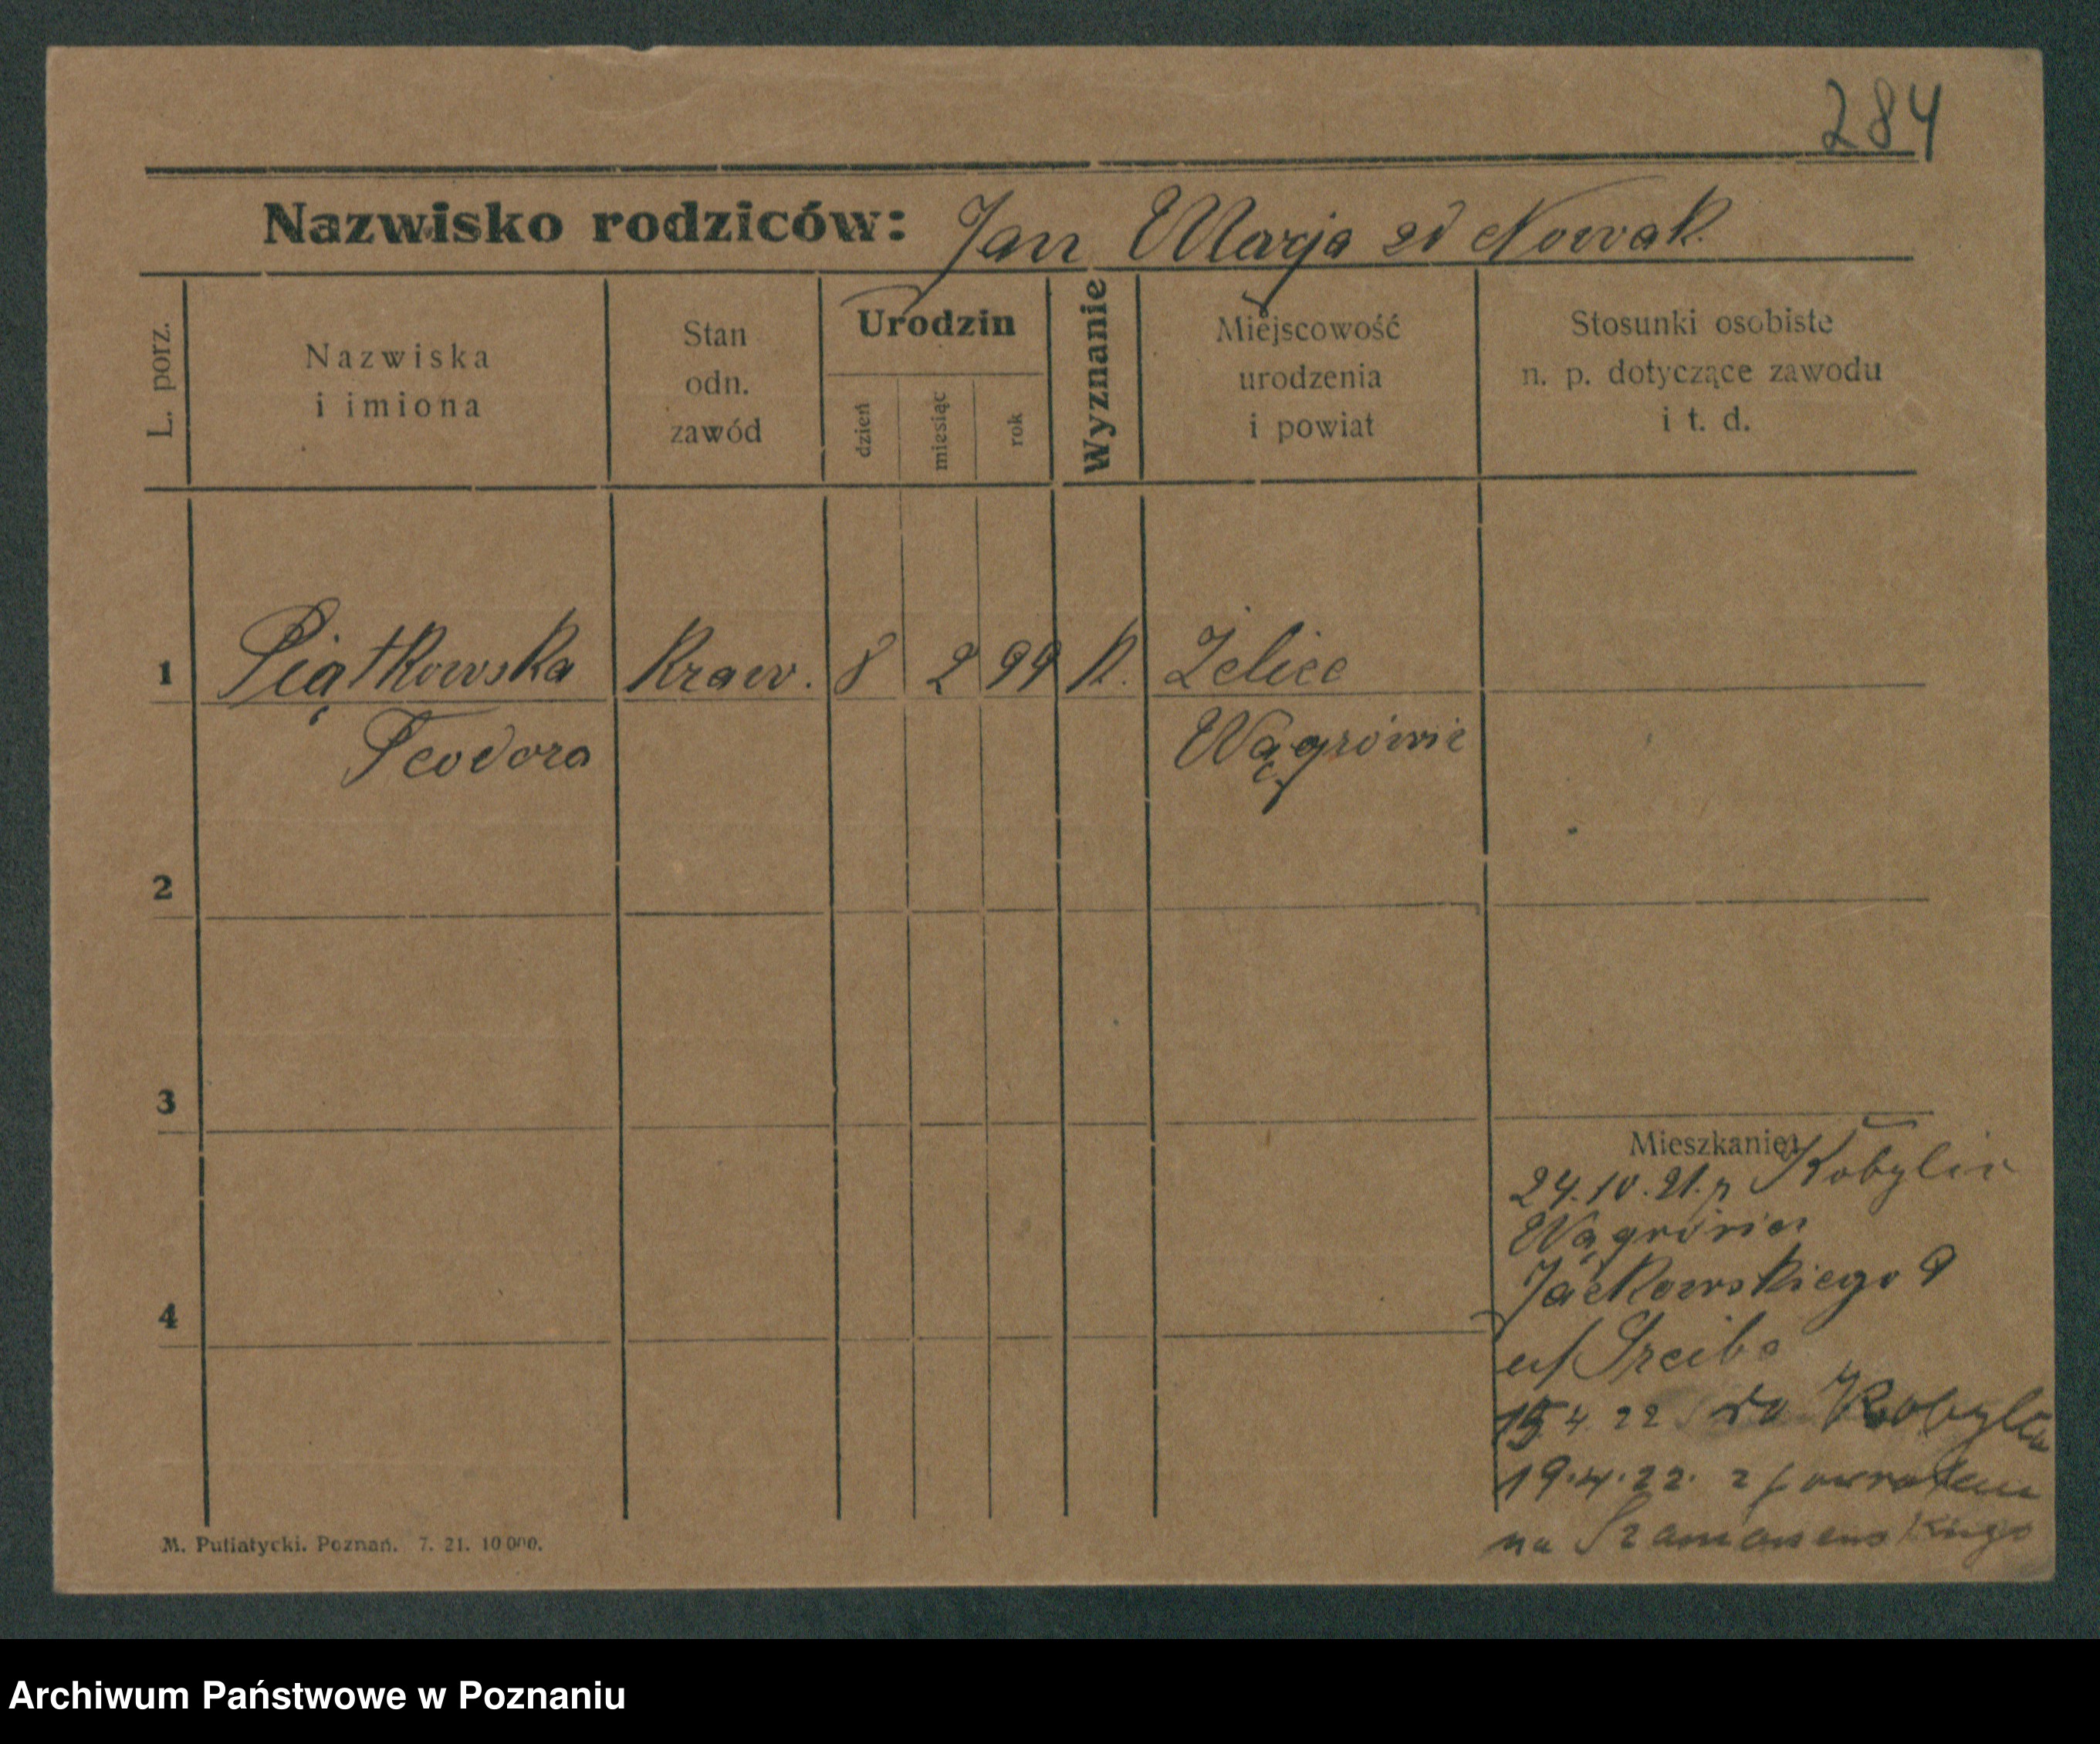 284
Nazwisko rodziców: Jan Marja zd Nowak
L. porz.
Nazwiska
i imiona
Stan
odn.
zawód
Urodzin
dzień
miesiąc
rok
Wyznanie
Miejscowość
urodzenia
i powiat
Stosunki osobiste
n. p. dotyczące zawodu
i t. d.
1 Piątkowska Kraw. 8 2 99 K. Żelice
Teodora Wągrówic
2
3
Mieszkanie:
24.10.21. z Kobylin
Wągrówiec
Jackowskiego 9
4
u/
15.4.22 do Kobylin
19.4.22. z powrotem
na
M. Putiatycki. Poznań. 7. 21. 10 000.
Archiwum Państwowe w Poznaniu